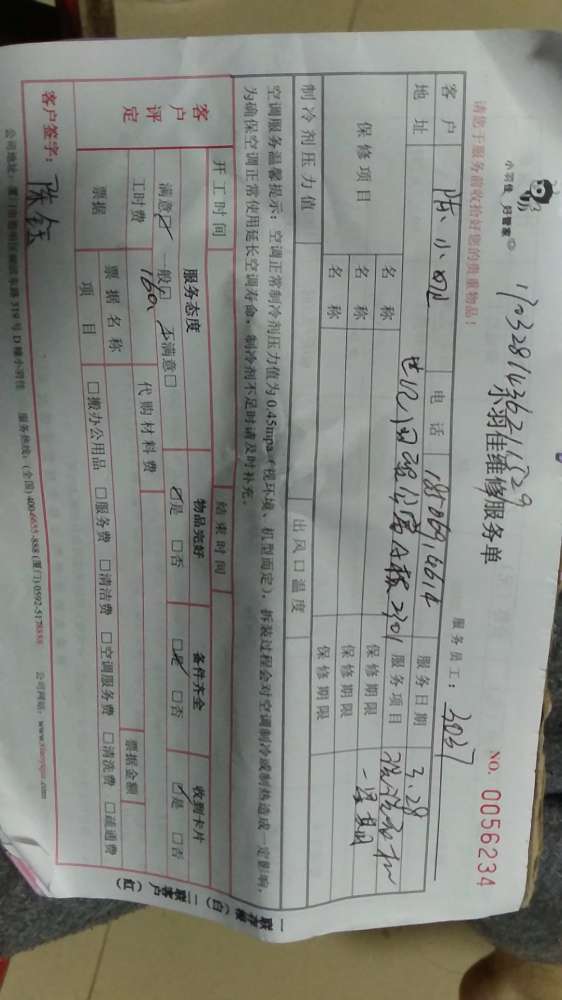 小羽佳 好管家
请您于服务前收拾好您的贵重物品！
小羽佳维修服务单
服务员工：3037
NO. 0056234
客户 陈小姐 电话 服务日期 3.28
地址 服务项目
保修项目 名称 保修期限
名称 保修期限
名称 保修期限
制冷剂压力值 出风口温度
空调服务温馨提示：空调正常制冷剂压力值为0.45mpa（视环境、机型而定），拆装过程会对空调制冷或制热造成一定影响，
为确保空调正常使用延长空调寿命，制冷剂不足时请及时补充。
开工时间 结束时间
客户评定 服务态度 物品完好 备件齐全 收到卡片
满意☑ 一般□ 不满意□ ☑是 □否 ☑是 □否 ☑是 □否
工时费 160 代购材料费
票据 票据名称 票据金额
项目 □搬办公用品 □服务费 □清洁费 □空调服务费 □清洗费 □疏通费
客户签字：陈钰
服务热线：(全国) 400-6655-888 (厦门) 0592-5178888 公司网站：
一联存根（白） 二联客户（红）